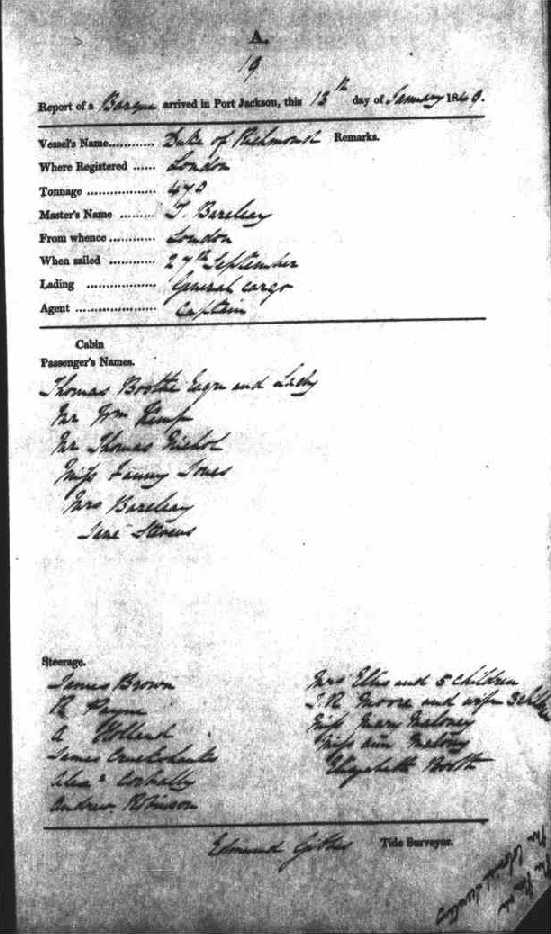 A.
19
Report of a Barque arrived in Port Jackson, this 13th day of January 1840.
Vessel's Name............ Duke of Richmond Remarks.
Where Registered ...... London
Tonnage .................. 470
Master's Name ......... T. Barclay
From whence ............ London
When sailed ............ 27th September
Lading .................. General cargo
Agent ..................... Captain
Cabin
Passenger's Names.
Thomas Booth Esqr and Lady
Mr Wm Kemp
Mr Thomas Nichol
Miss Fanny Jones
Mrs Barclay
Jane Stevens
Steerage.
James Brown
R
A Holland
James Cruikshanks
Connelly
Andrew Robinson
Mrs Ellis and 5 children
J.R. Moore and wife 3
Miss Mary Maloney
Miss Ann Maloney
Elizabeth Booth
Edmund Gibbes Tide Surveyor.